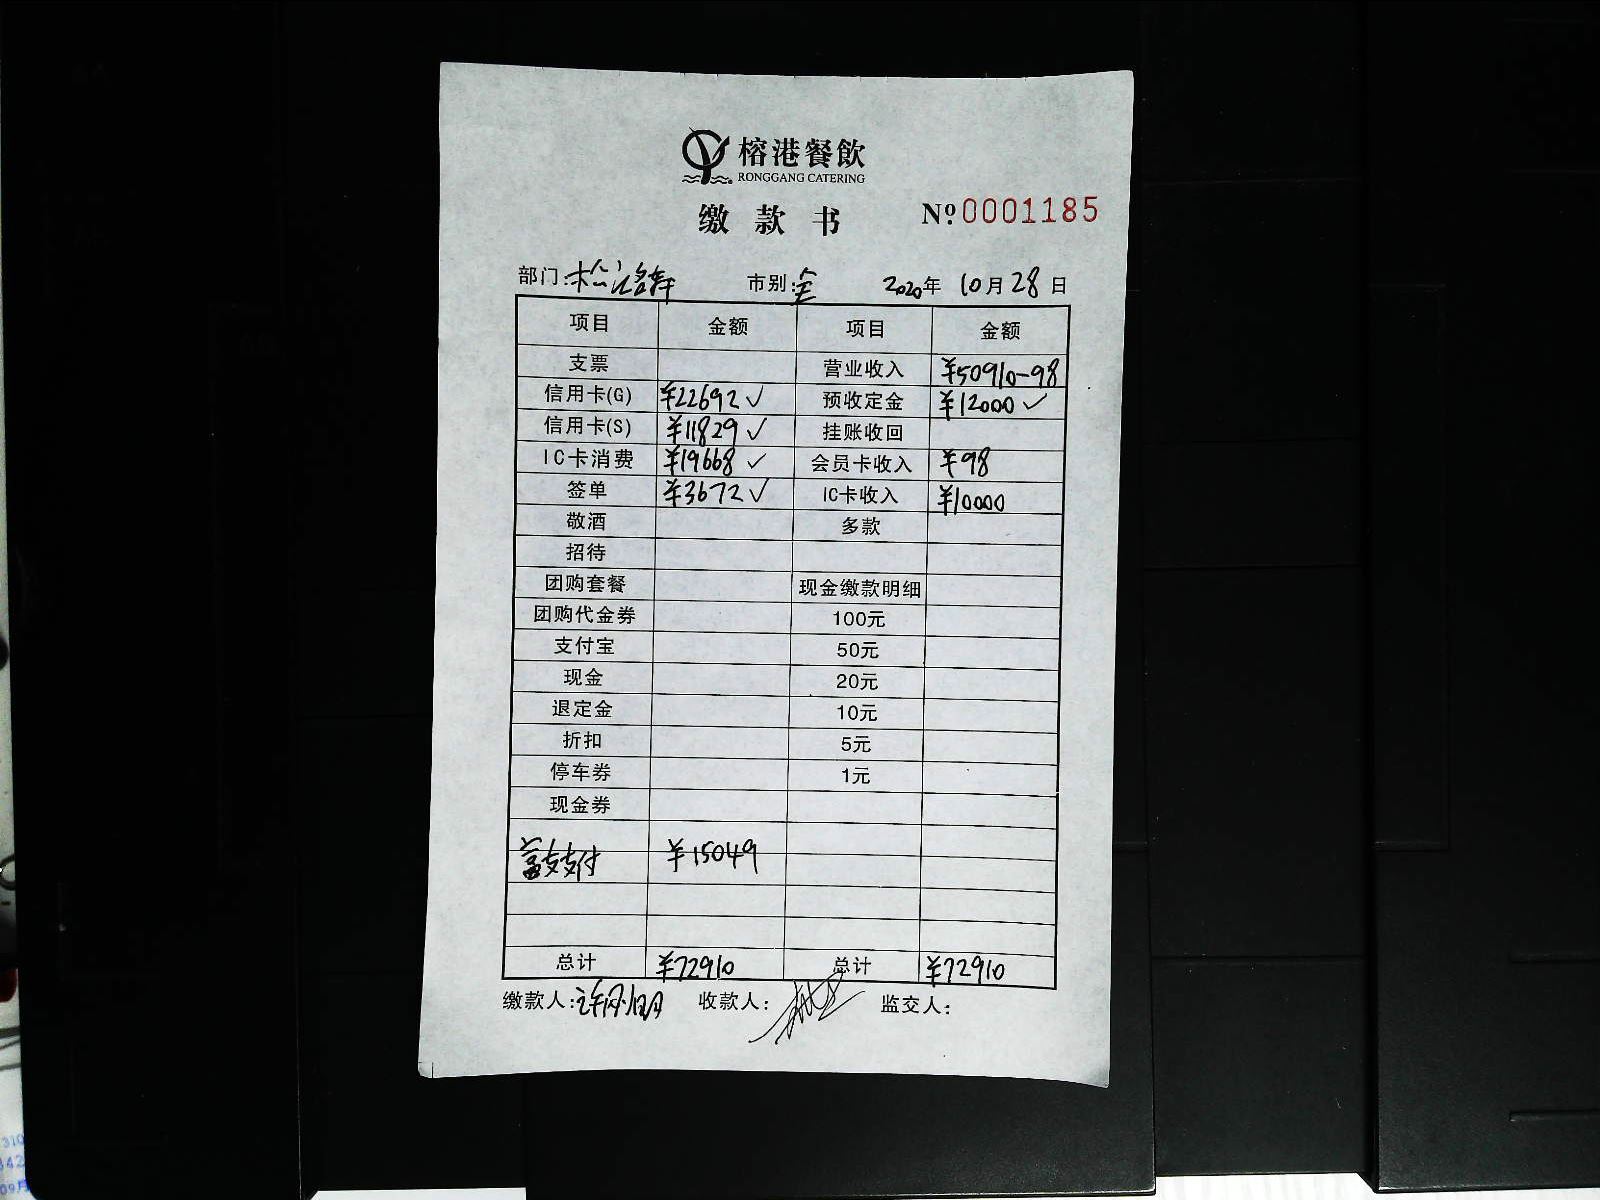 榕港餐飲
RONGGANG CATERING
缴款书 Nº 0001185
部门: 市别:全 2020年 10月28日
项目 金额 项目 金额
支票 营业收入 ¥50910-98
信用卡(G) ¥22692✓ 预收定金 ¥12000✓
信用卡(S) ¥11829✓ 挂账收回
IC卡消费 ¥19668✓ 会员卡收入 ¥98
签单 ¥3672✓ IC卡收入 ¥10000
敬酒 多款
招待
团购套餐 现金缴款明细
团购代金券 100元
支付宝 50元
现金 20元
退定金 10元
折扣 5元
停车券 1元
现金券
富友支付 ¥15049
总计 ¥72910 总计 ¥72910
缴款人: 收款人: 监交人:
310
342
09月